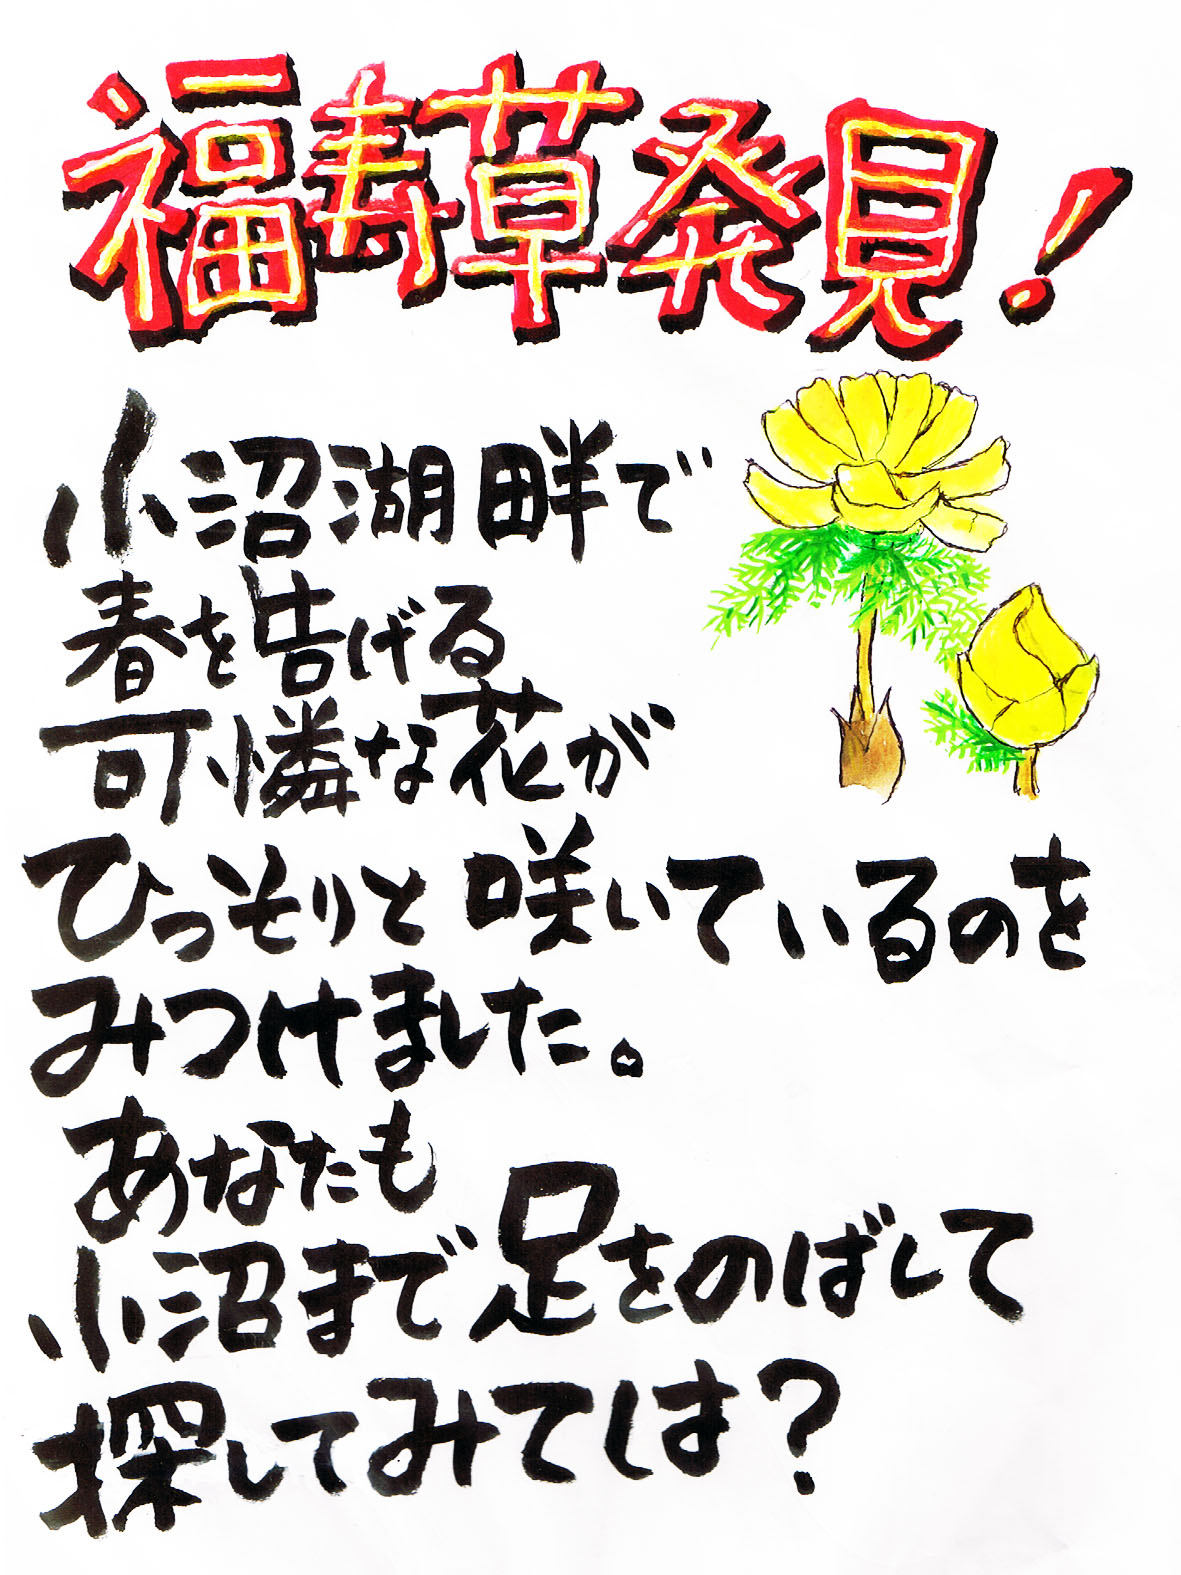 福寿草発見!
小沼湖畔で
春を告げる
可憐な花が
ひっそりと咲いているのを
みつけました。
あなたも
小沼まで足をのばして
探してみては?